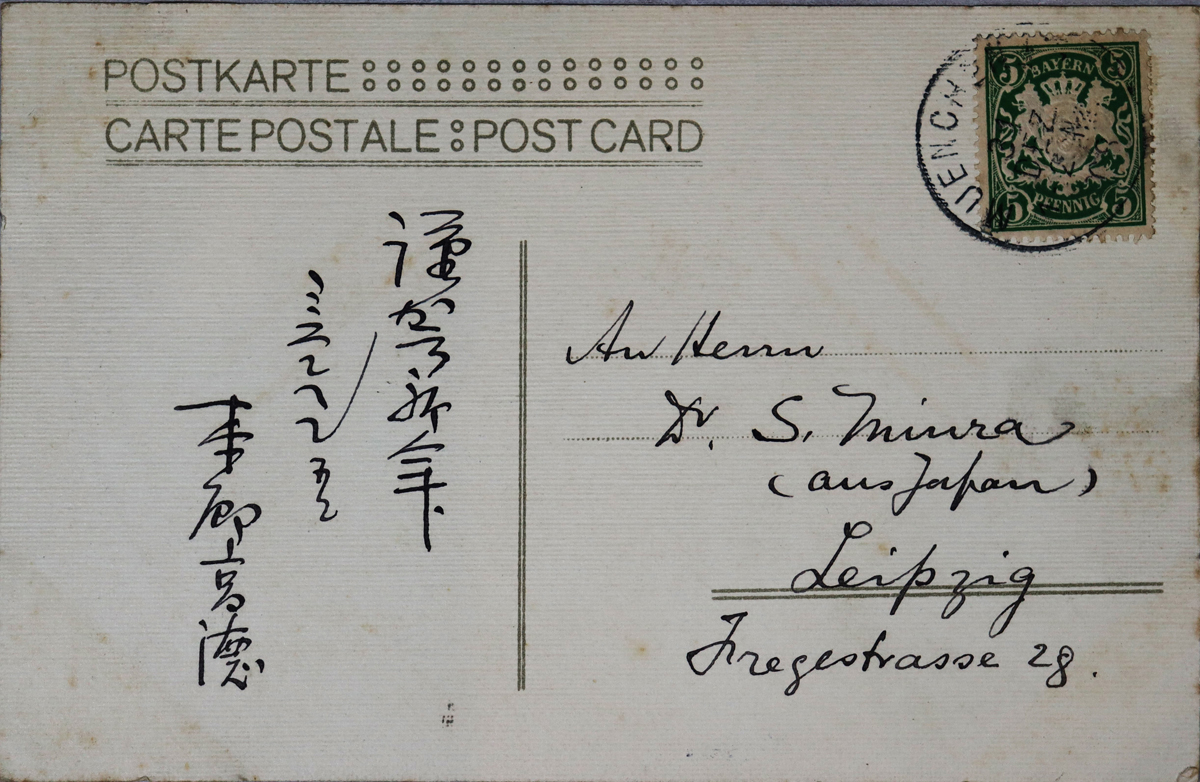 POSTKARTE
CARTE POSTALE : POST CARD
5 BAYERN 5
5 PFENNIG 5
謹賀新年
東郷高徳
An Herrn
Dr. S. Miura
(aus Japan)
Leipzig
Fregestrasse 28.